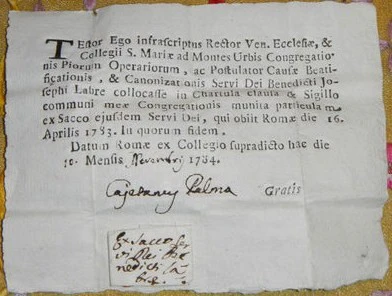 TEstor Ego infrascriptus Rector Ven. Ecclesiæ, &
Collegii S. Mariæ ad Montes Urbis Congregatio-
nis Piorum Operariorum, ac Postulator Causæ Beati-
ficationis, & Canonizationis Servi Dei Benedicti Jo-
sephi Labre collocasse in Chartula clausa & Sigillo
communi meæ Congregationis munita particulam
ex Sacco ejusdem Servi Dei, qui obiit Romæ die 16.
Aprilis 1783. In quorum fidem.
Datum Romæ ex Collegio supradicto hac die
10. Mensis Novembrij 1784.
Cajetanus Palma Gratis
Ex Sacco Ser
vi Dei Be
nedicti La
bre